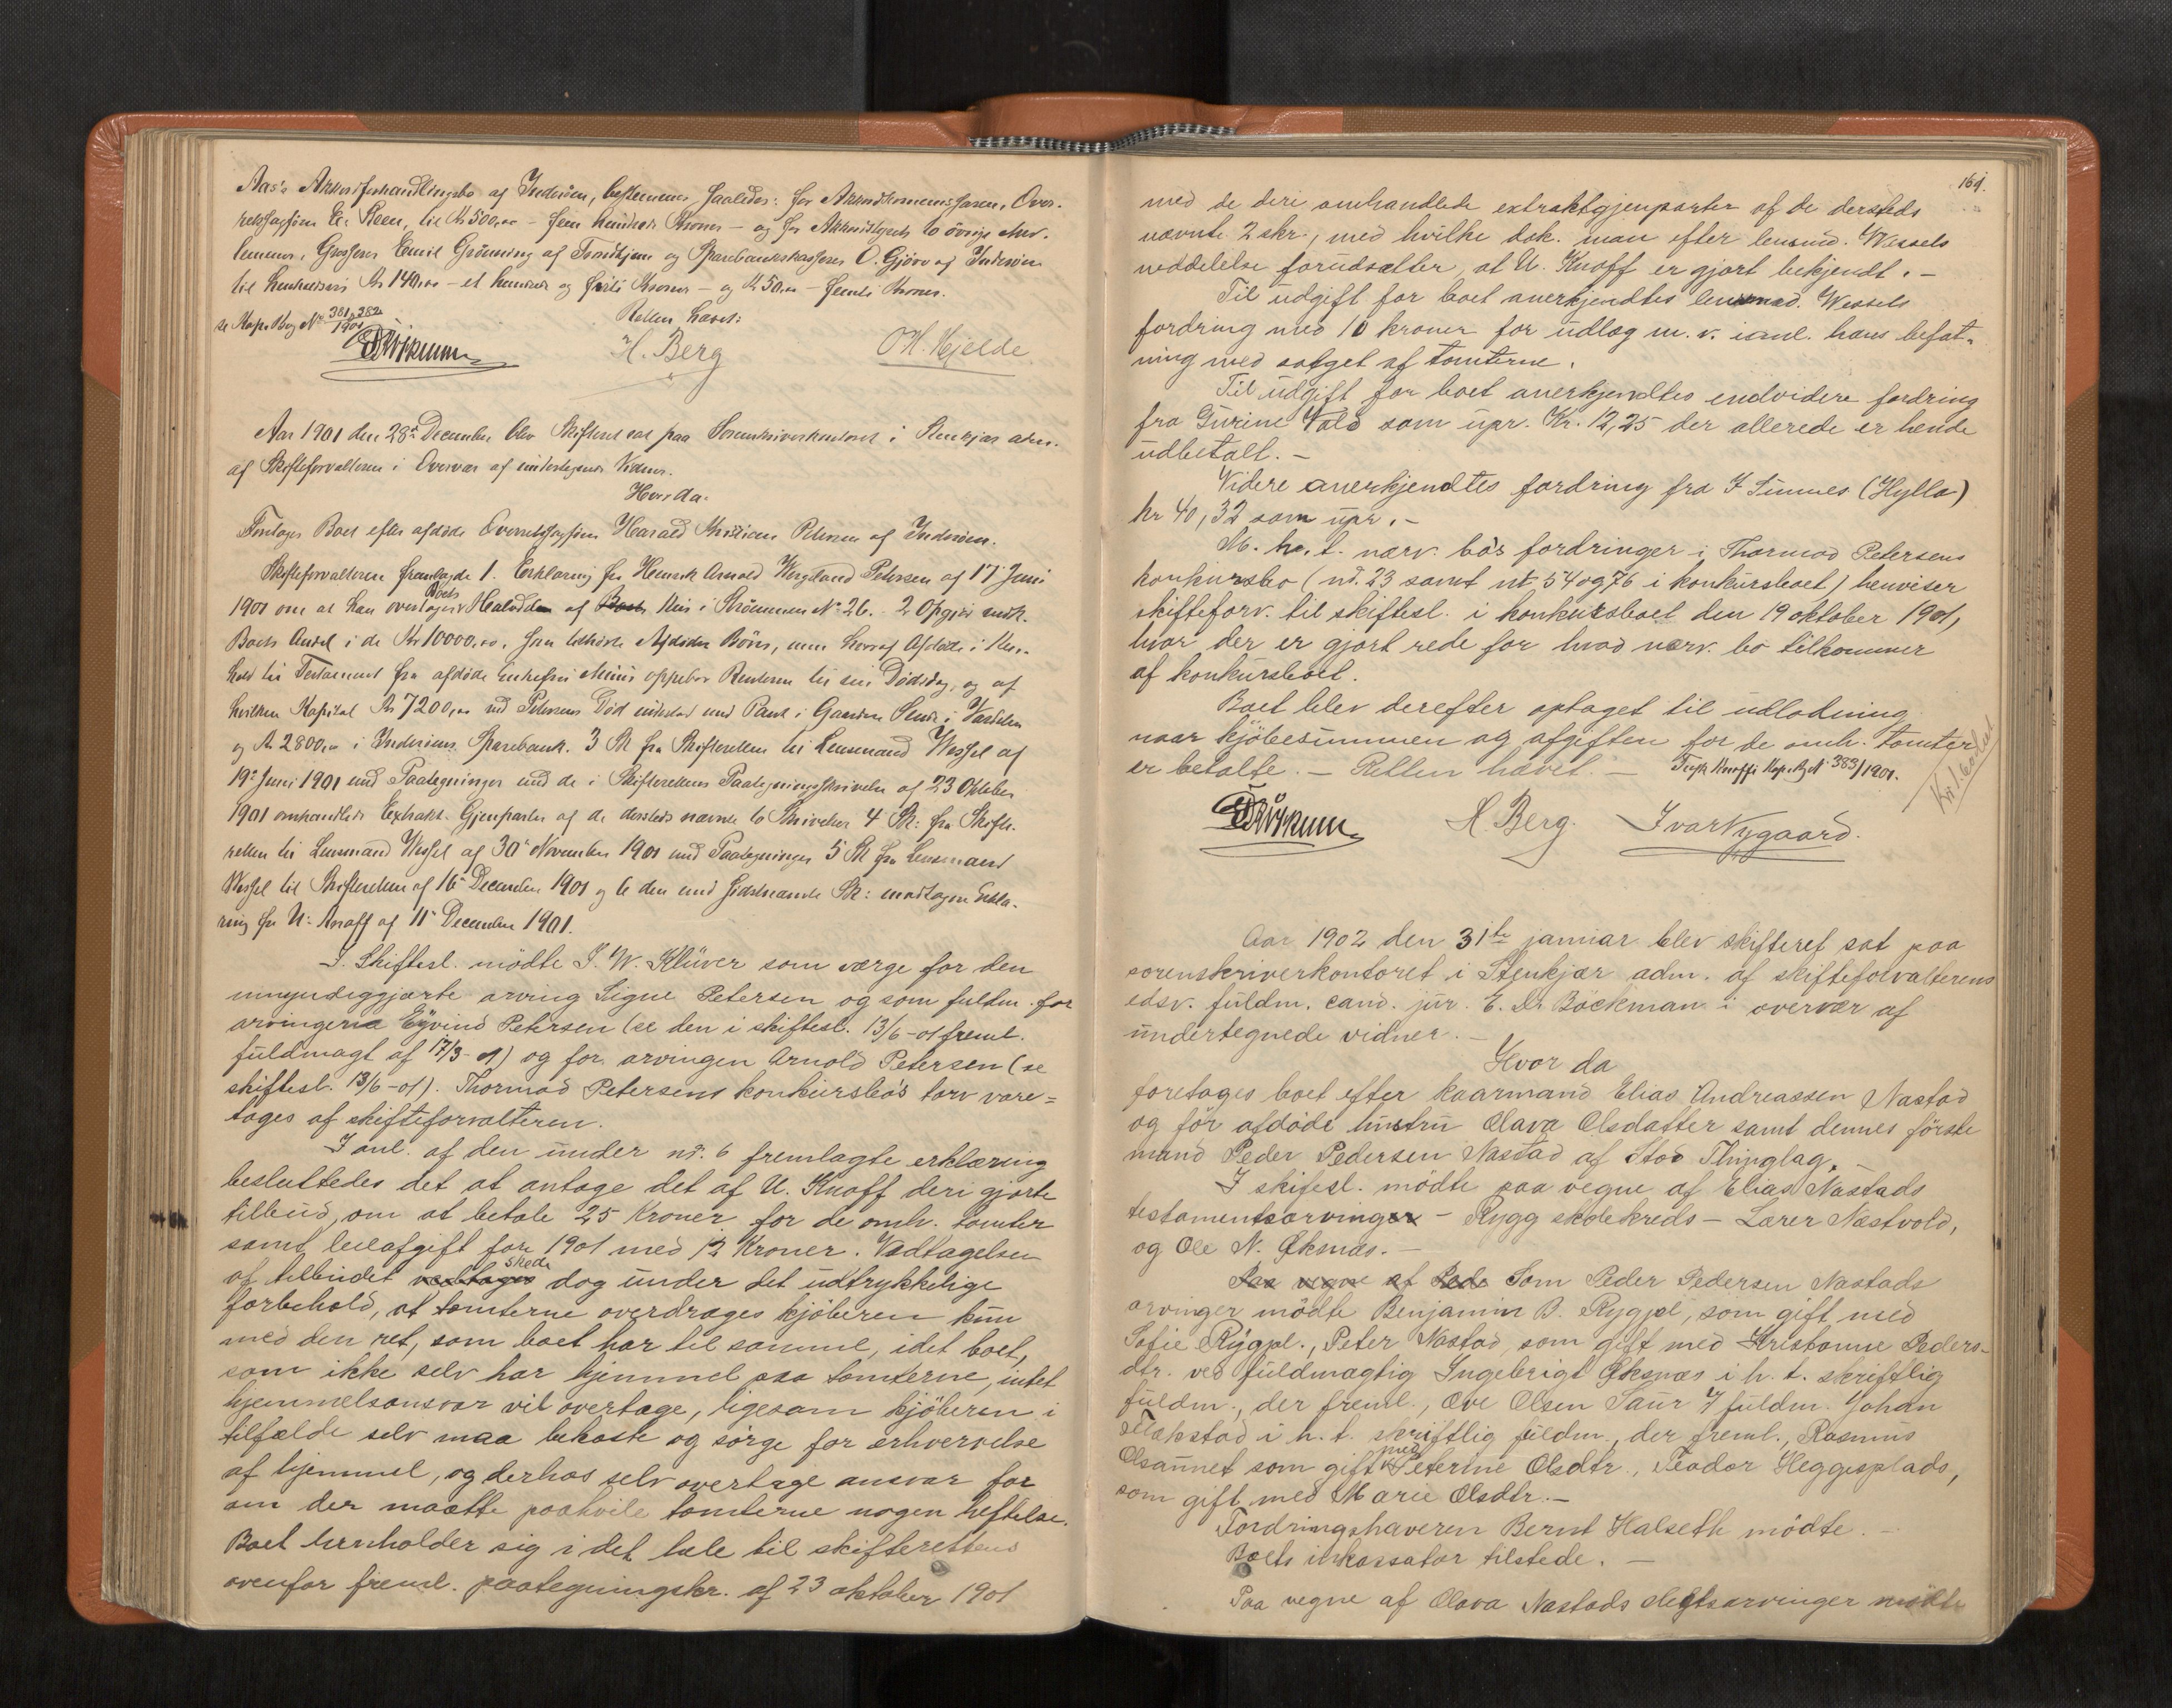 Aas's Akkordforhandlingsbo af Inderøen, bestemmes saaledes: for Akkordkommissæren, Over-
retssagfører E. Steen, til Kr 500,00 – fem hundrede Kroner – og for Akkordstyrets to øvrige Med-
lemmer, Grosserer Emil Grønning af Trondhjem og Sparebankkasserer O. Gjørv af Inderøen
til henholdsvis Kr 140,00 – et hundrede og firti Kroner – og Kr 50,00 – femti Kroner.
se Kopi Bog No 381, 382/1901
Retten hævet:
H. Berg
O H. Hjelde
Aar 1901 den 28de December blev Skifteret sat paa Sorenskriverkontoret i Stenkjær adm.
af Skifteforvalteren i Overvær af undertegnede Vidner.
Hvor da:
Foretages Boet efter afdøde Overretssagfører Harald Kristian Petersen af Inderøen.
Skifteforvalteren fremlagde 1. Erklæring fra Henrik Arnold Wergeland Petersen af 17 Juni
1901 om at han overtager Boets Halvdel af Huset i Strømmen No 26. 2 Opgivende
Boets Andel i de Kr 10000,00, som tilhørte Afdødes Børn, men hvoraf Afdøde i Hen-
hold til Testament fra afdøde Enkefru oppebar Renterne til sin Dødsdag, og af
hvilken Kapital Kr 7200,00 ved Petersens Død indestod med Pant i Gaarden i Værdalen
og Kr 2800,00 i Inderøens Sparebank. 3 Sk fra Skifteretten til Lensmand Wessel af
19de Juni 1901 med Paategninger med de i Skifterettens Paategningsskrivelse af 23 Oktober
1901 omhandlede Extrakt-Gjenparter af de dersteds nævnte to Skrivelser 4 Sk: fra Skifte-
retten til Lensmand Wessel af 30de November 1901 med Paategninger 5 Sk fra Lensmand
Wessel til Skifteretten af 16de December 1901 og 6 den med sidstnævnte Sk: modtagne Erklæ-
ring fra U. Knoff af 11te December 1901.
I. Skiftesl. mödte I. W. Klüver som værge for den
umyndiggjorte arving Signe Petersen og som fuldm. for
arvingerne Eyvind Petersen (se den i skiftesl. 13/6-01 freml.
fuldmagt af 17/3-01) og for arvingen Arnold Petersen (se
skiftesl. 13/6-01). Thormod Petersens konkursbo's tarv vare=
tages af skifteforvalteren.
I anl. af den under no. 6 fremlagte erklæring
besluttedes det at antage det af U. Knoff deri gjorte
tilbud, om at betale 25 Kroner for de omh. tomter
samt leieafgift for 1901 med 12 Kroner. Vedtagelsen
af tilbudet vedtages skede dog under det udtrykkelige
forbehold, at tomterne overdrages kjöberen kun
med den ret, som boet har til samme, idet boet,
som ikke selv har hjemmel paa tomterne, intet
hjemmelsansvar vil overtage, ligesom kjöberen i
tilfælde selv maa bekoste og sörge for erhvervelse
af hjemmel, og derhos selv overtage ansvar for
om der maatte paahvile tomterne nogen heftelse.
Boet henholder sig i det hele til skifterettens
ovenfor freml. paategningskr. af 23 oktober 1901
164.
med de deri omhandlede extraktgjenparter af de dersteds
nævnte 2 skr., med hvilke dok. man efter lensmd. Wessels
meddelelse forudsætter, at U. Knoff er gjort bekjendt. –
Til udgift for boet anerkjendtes lensmad. Wessels
fordring med 10 kroner for udlæg m. v. i anl. hans befat-
ning med salget af tomterne.
Til udgift for boet anerkjendtes endvidere fordring
fra Gurine Vold som upr. Kr. 12,25 der allerede er hende
udbetalt. –
Videre anerkjendtes fordring fra I Sunnes (Hylla)
kr 40,32 som upr. –
M. h. t. nærv. bo's fordringer i Thormod Petersens
konkursbo (no. 23 samt no. 54 og 76 i konkursboet) henviser
skifteforv. til skiftesl. i konkursboet den 19 oktober 1901,
hvor der er gjort rede for hvad nærv. bo tilkommer
af konkursboet.
Boet blev derefter optaget til udlodning
naar kjöbesummen og afgiften for de omh. tomter
er betalte. – Retten hævet. – Knoff Kop. B. No 383/1901.
H. Berg. Ivar Nygaard.
Aar 1902 den 31te januar blev skifteret sat paa
sorenskriverkontoret i Stenkjær adm. af skifteforvalterens
edsv. fuldm. cand. jur. E. Dr Böckman i overvær af
undertegnede vidner. –
Hvor da
foretages boet efter kaarmand Elias Andreassen Nastad
og för afdöde hustru Olava Olsdatter samt dennes förste
mand Peder Pedersen Nastad af Stod Thinglag. –
I skiftesl. mödte paa vegne af Elias Nastads
testamentsarvinger – Rygg skolekreds – Lærer Næstvold,
og Ole N. Öksnæs. –
Paa vegne af Peder Som Peder Pedersen Nastads
arvinger mödte Benjamin B. Ryggpl, som gift med
Sofie Ryggpl., Peter Nastad, som gift med Kristanne Peders-
dtr. ved fuldmægtig Ingebrigt Öksnæs i h. t. skriftlig
fuldm., der freml., Ove Olsen Saur v/ fuldm. Johan
Flakstad i h. t. skriftlig fuldm., der freml., Rasmus
Olsaunet som gift med Peterine Olsdtr., Teodor Heggesplads,
som gift med Marie Olsdtr. –
Fordringshaveren Bernt Halseth mödte. –
Boets inkassator tilstede. –
Paa vegne af Olava Nastads slegtsarvinger mödte